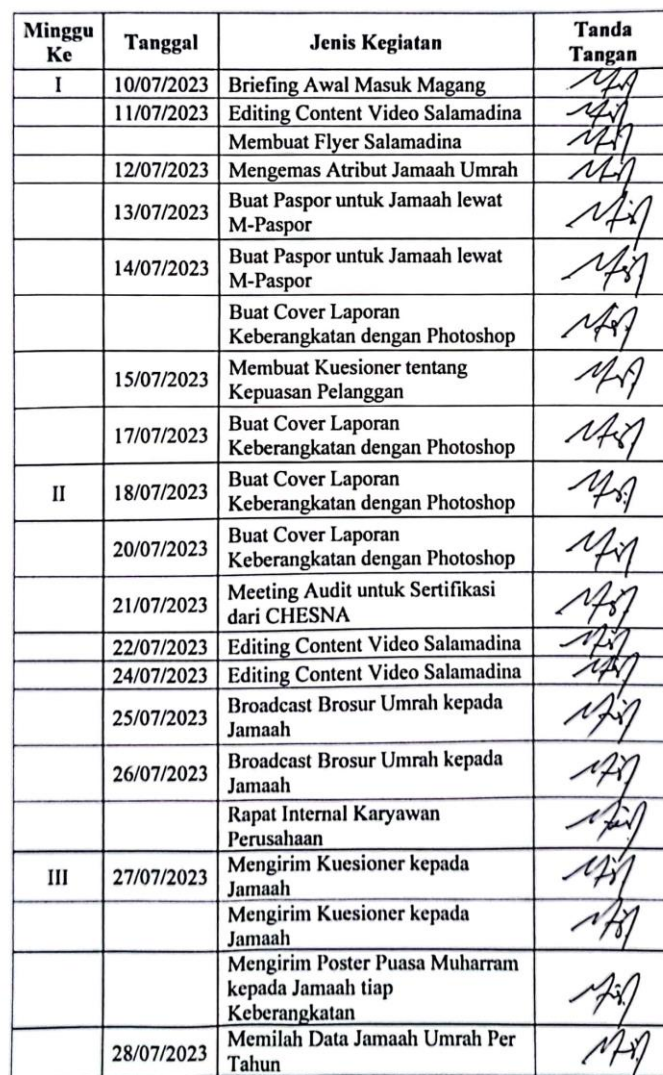 Minggu Ke Tanggal Jenis Kegiatan Tanda Tangan
I 10/07/2023 Briefing Awal Masuk Magang
11/07/2023 Editing Content Video Salamadina
Membuat Flyer Salamadina
12/07/2023 Mengemas Atribut Jamaah Umrah
13/07/2023 Buat Paspor untuk Jamaah lewat
M-Paspor
14/07/2023 Buat Paspor untuk Jamaah lewat
M-Paspor
Buat Cover Laporan
Keberangkatan dengan Photoshop
15/07/2023 Membuat Kuesioner tentang
Kepuasan Pelanggan
17/07/2023 Buat Cover Laporan
Keberangkatan dengan Photoshop
II 18/07/2023 Buat Cover Laporan
Keberangkatan dengan Photoshop
20/07/2023 Buat Cover Laporan
Keberangkatan dengan Photoshop
21/07/2023 Meeting Audit untuk Sertifikasi
dari CHESNA
22/07/2023 Editing Content Video Salamadina
24/07/2023 Editing Content Video Salamadina
25/07/2023 Broadcast Brosur Umrah kepada
Jamaah
26/07/2023 Broadcast Brosur Umrah kepada
Jamaah
Rapat Internal Karyawan
Perusahaan
III 27/07/2023 Mengirim Kuesioner kepada
Jamaah
Mengirim Kuesioner kepada
Jamaah
Mengirim Poster Puasa Muharram
kepada Jamaah tiap
Keberangkatan
28/07/2023 Memilah Data Jamaah Umrah Per
Tahun